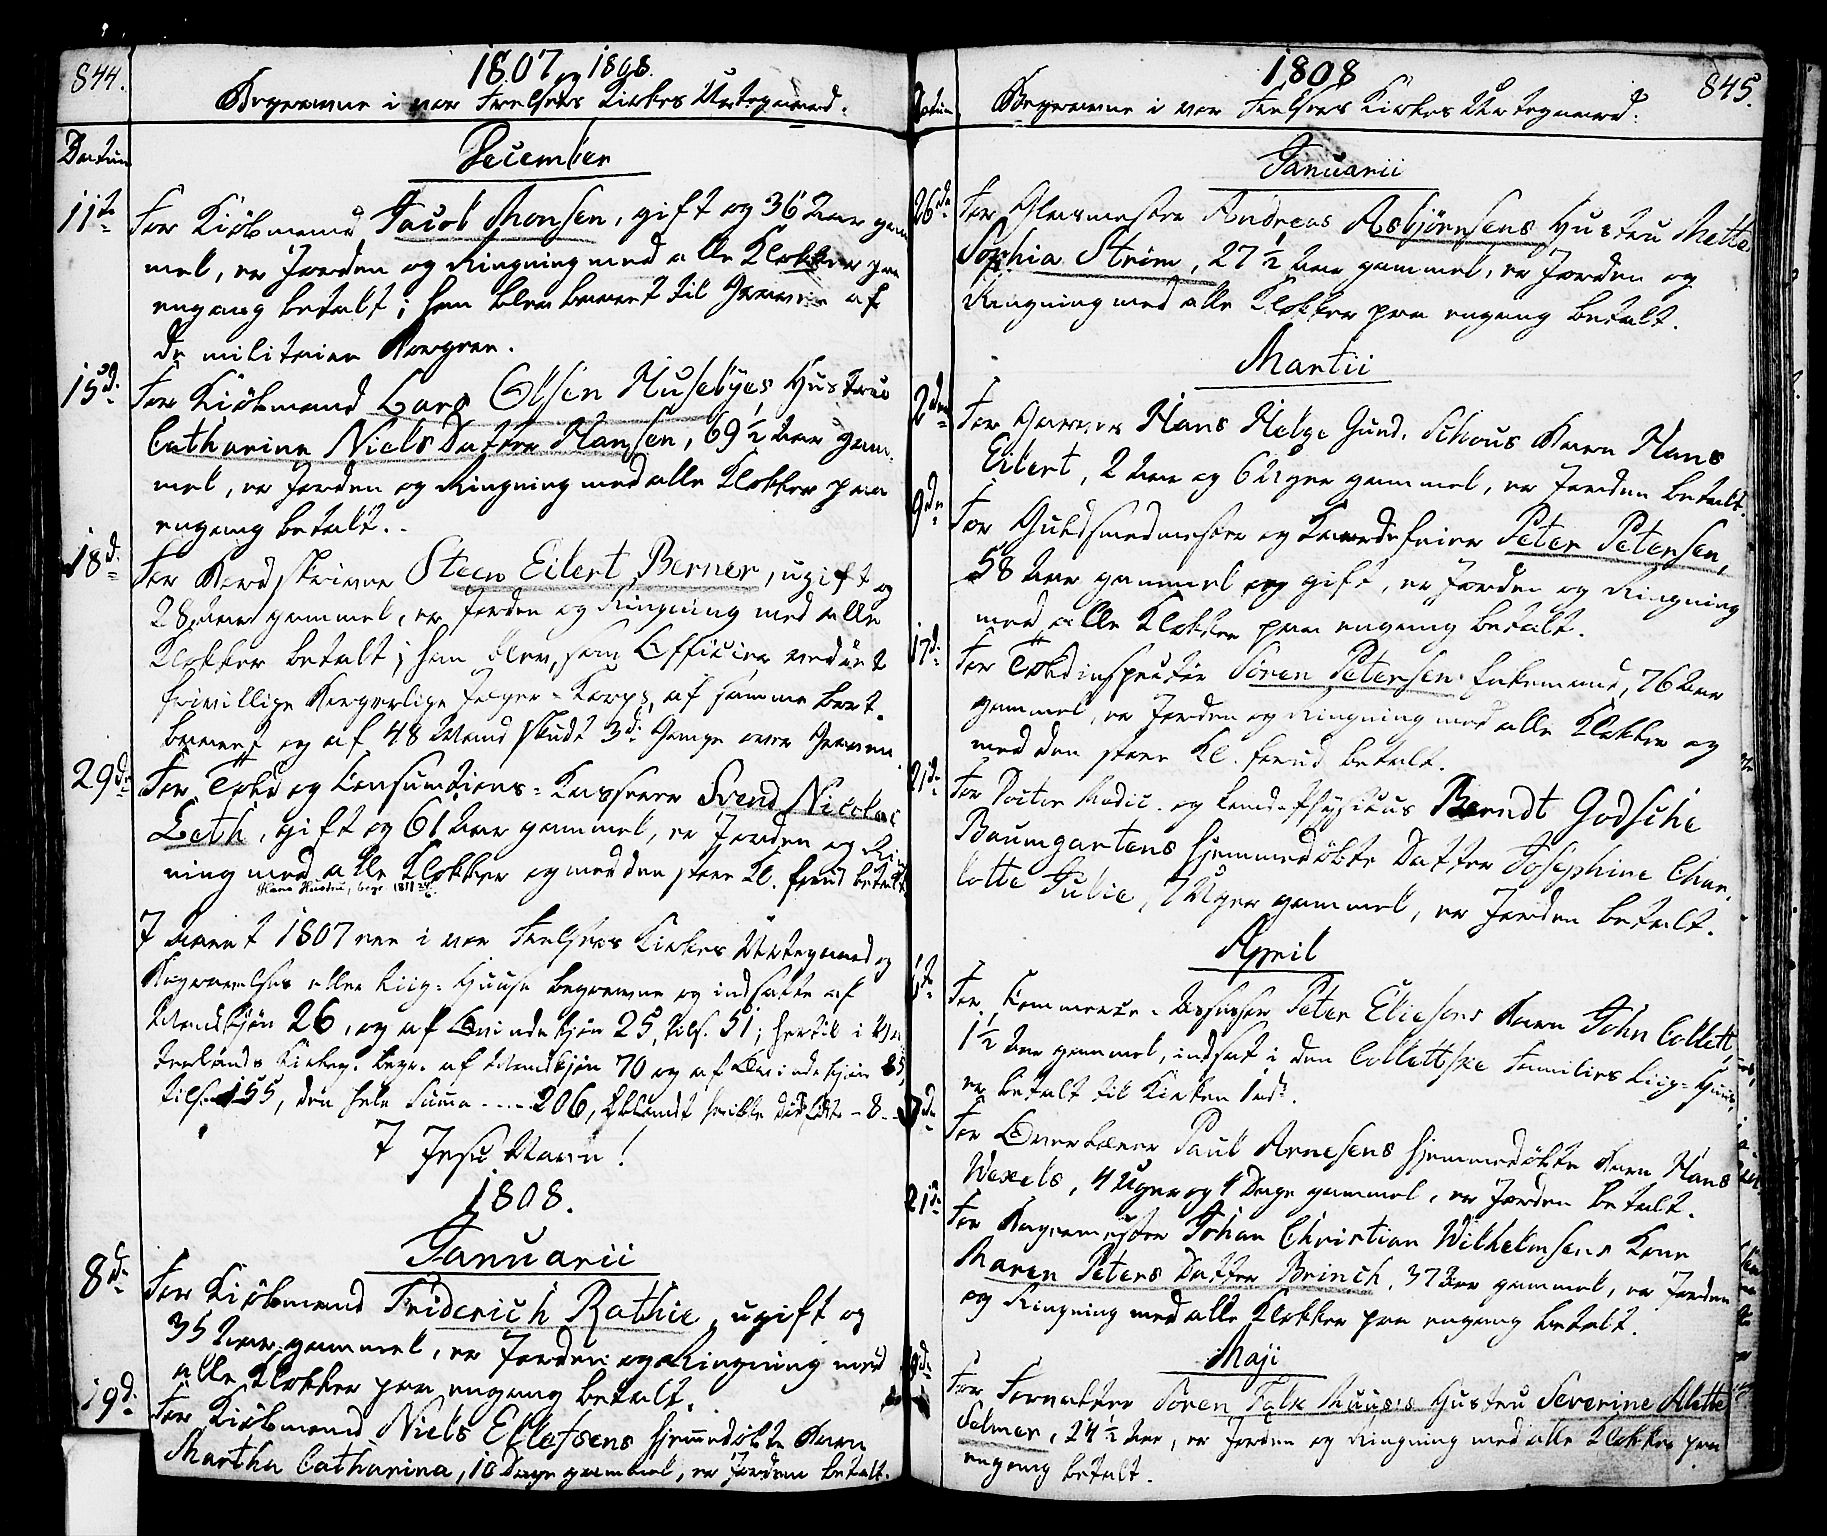 844.
1807 og 1808.
Begravne i vor Frelsers Kirkes Urtegaard.
Datum
December
11te For Kiöbmand Jacob Monsen, gift og 36 Aar gam
mel, er Jorden og Ringning med alle Klokker paa
engang betalt; han blev baaret til Graven af
de militaire Borgere.
15d. For Kiöbmand Lars Olsen Husebyes Hustrue
Catharina Niels Datter Hansen, 69 1/2 Aar gam-
mel, er Jorden og Ringning med alle Klokker paa
engang betalt.
18d. For Bordskriver Steen Eilert Berner, ugift og
28 Aar gammel, er Jorden og Ringning med alle
Klokker betalt; han blev, som Officier ved det
frivillige Borgerlige Jæger-Korps, af samme bort-
baaret og af 48 Mand skudt 3de Gange over Graven.
29de For Told og Consumtions-Kasserer Svend Nicolai
Leth, gift og 61 Aar gammel, er Jorden og Ring
ning med alle Klokker og med den store Kl. forud betalt
Hans Hustru, begr. 1811
I Aaret 1807 ere i vor Frelsers Kirkes Urtegaard og
Begravelses eller Liig-Huuse begravne og indsatte af
Mandkjön 26, og af Qvindekjön 25, tils. 51; hertil i Vor
Kirkeg. begr. af Mandkjön 70 og af Qvindekjön 85,
tils. 155, den hele Summa ---- 206, iblandt hvilke dödfödte - 8.
I Jesu Navn!
1808.
Januarii
8de For Kiöbmand Friderich Rathie, ugift og
35 Aar gammel, er Jorden og Ringning med
alle Klokker paa engang betalt.
19d. For Kiöbmand Niels Ellefsens hjemmedöbte Barn
Martha Catharina, 10 Dage gammel, er Jorden betalt.
1808
845.
Datum
Begravne i vor Frelsers Kirkes Urtegaard.
Januarii
26de For Glasmester Andreas Asbjörnsens Hustru Mette
Sophia Ström, 27 1/2 Aar gammel, er Jorden og
Ringning med alle Klokker paa engang betalt.
Martii
2den For Garver Hans Helge Gund. Schous Barn Hans
Eilert, 2 Aar og 6 Uger gammel, er Jorden betalt.
9de For Guldsmedmester og Kaardefeier Peter Petersen,
58 Aar gammel og gift, er Jorden og Ringning
med alle Klokker paa engang betalt.
17d. For Toldinspecteur Sören Petersen Enkemand, 76 Aar
gammel, er Jorden og Ringning med alle Klokker og
med den store Kl. forud betalt.
21d. For Doctor Medic. og Land-Physicus Berndt Godsche
Baumgartens hjemmedöbte Datter Josephine Char-
lotte Julie, 7 Uger gammel, er Jorden betalt.
April
For Commerce-Assessor Peter Eliesons Barn John Collett,
1 1/2 Aar gammel, indsat i den Collettske Families Liig-Huus,
er betalt til Kirken
For Overlærer Paul Arnesens hjemmedöbte Barn Hans
Wexels, 4 Uger og 1 Dage gammel, er Jorden betalt.
21d. For Bagermester Johan Christian Wilhelmsens Kone
Maren Peters Datter Brinch, 37 Aar gammel, er Jorden
og Ringning med alle Klokker paa engang betalt.
Maji
For Forvalter Sören Falk Muuses Hustru Severine Alette
Selmer, 24 1/2 Aar, er Jorden og Ringning med alle Klokker paa
engang betalt.